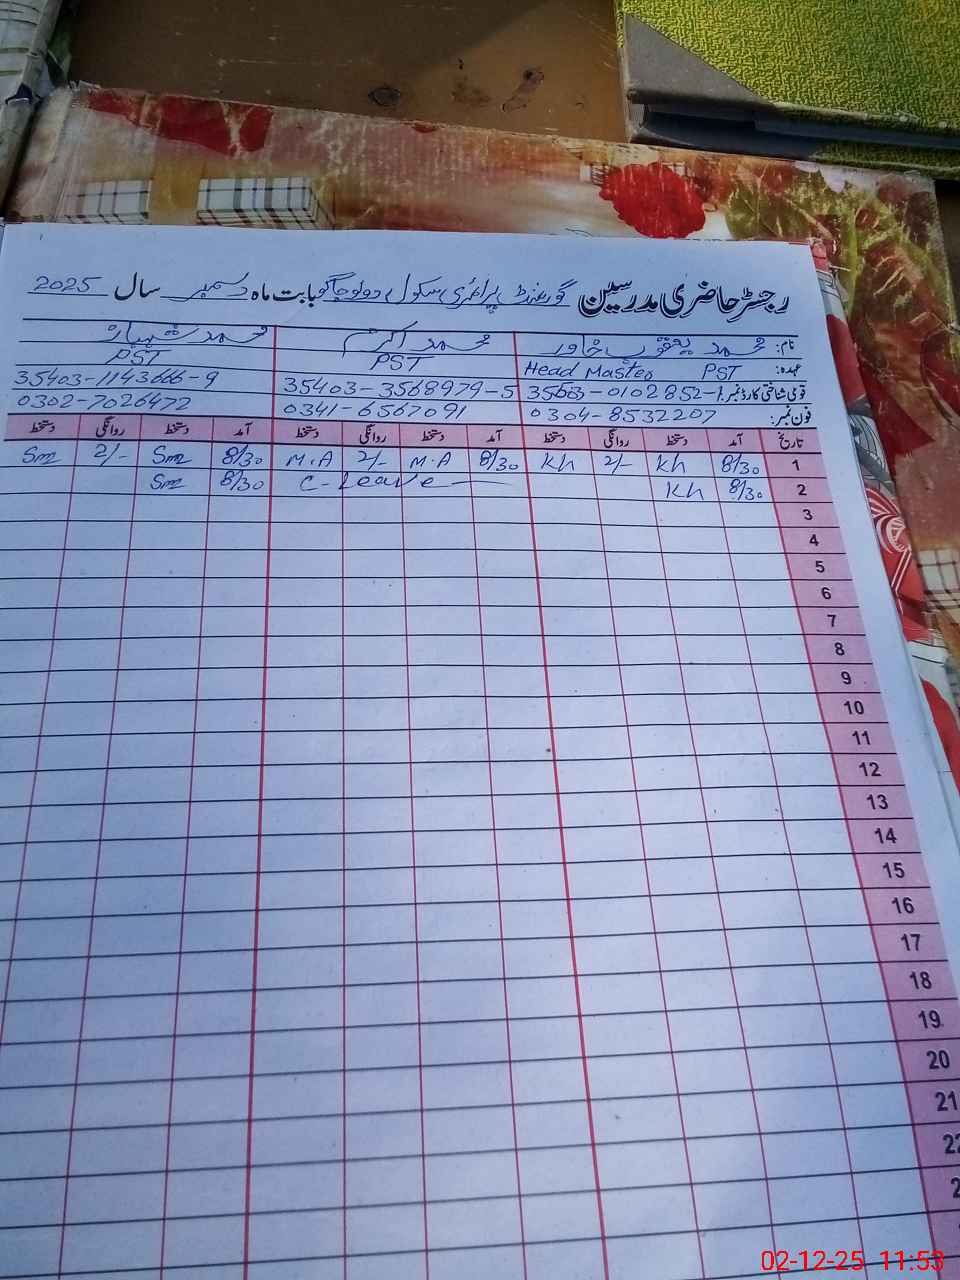 رجسٹر حاضری مدرسین گورنمنٹ پرائمری سکول بابت ماہ دسمبر سال 2025
نام: محمد یعقوب خاور محمد اکرم محمد شہباز
عہدہ: Head Master PST PST PST
قومی شناختی کارڈ نمبر: 35403-3568979-5 35403-1143666-9
فون نمبر: 0304-8532207 0341-6567091 0302-7026472
تاریخ آمد دستخط روانگی دستخط آمد دستخط روانگی دستخط آمد دستخط روانگی دستخط
1 8/30 Kh 2/- Kh 8/30 M.A 2/- M.A 8/30 Sm 2/- Sm
2 8/30 Kh C-Leave 8/30 Sm
3
4
5
6
7
8
9
10
11
12
13
14
15
16
17
18
19
20
21
22
02-12-25 11:53